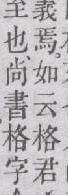 義焉如云格君
至也尚書格字